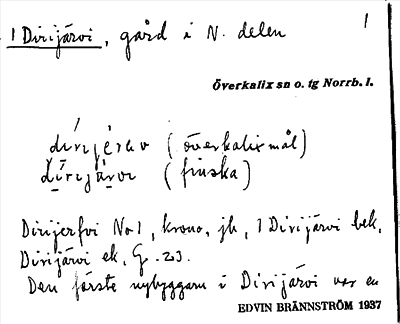 1 Dirijärvi, gård i N. delen 1
Överkalix sn o. tg Norrb. l.
(överkalixmål)
(finska)
Dirijerfvi No 1, krono, jb, 1 Dirijärvi bek,
Dirijärvi ek. G. 23.
Den förste nybyggaren i Dirijärvi var en
EDVIN BRÄNNSTRÖM 1937